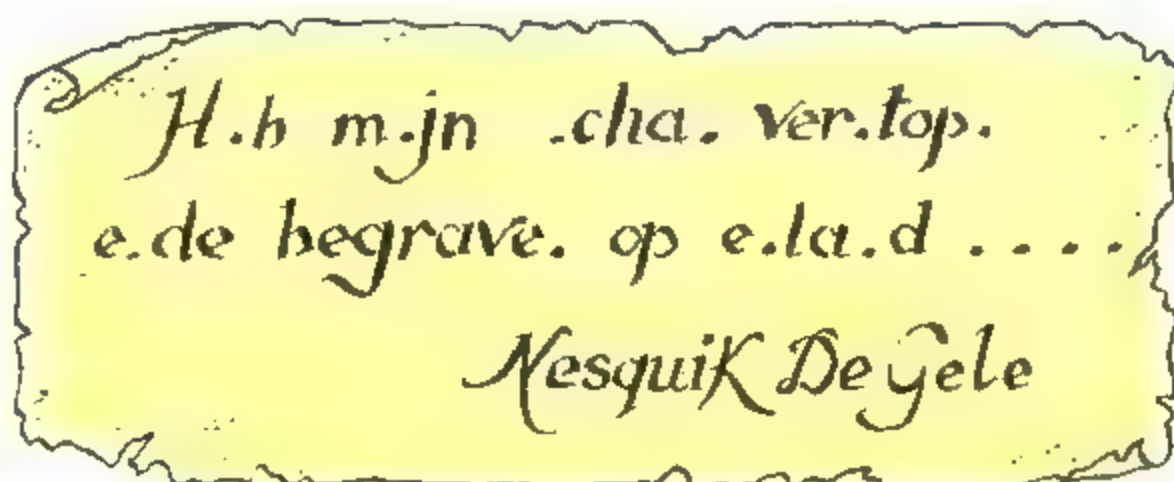 H.b m.jn .cha. ver.top.
e.de begrave. op e.la.d ....
Nesquik De Gele